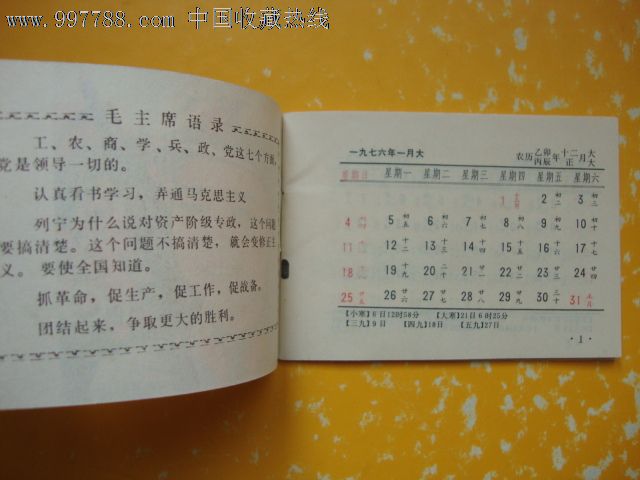 www.997788.com 中国收藏热线
毛主席语录
工、农、商、学、兵、政、党这七个方面，
党是领导一切的。
认真看书学习，弄通马克思主义
列宁为什么说对资产阶级专政，这个问题
要搞清楚。这个问题不搞清楚，就会变修正主
义。要使全国知道。
抓革命，促生产，促工作，促战备。
团结起来，争取更大的胜利。
一九七六年一月大
农历乙卯年十二月大
丙辰年正大
星期日 星期一 星期二 星期三 星期四 星期五 星期六
1 2 初二 3 初三
4 5 初五 6 7 初七 8 初八 9 初九 10 初十
11 十一 12 十二 13 十三 14 十四 15 十五 16 十六 17 十七
18 19 十九 20 二十 21 廿一 22 廿二 23 廿三 24 廿四
25 廿五 26 廿六 27 廿七 28 廿八 29 廿九 30 三十 31 正月
【小寒】6日12时58分 【大寒】21日6时25分
【三九】9日 【四九】18日 【五九】27日
·1·